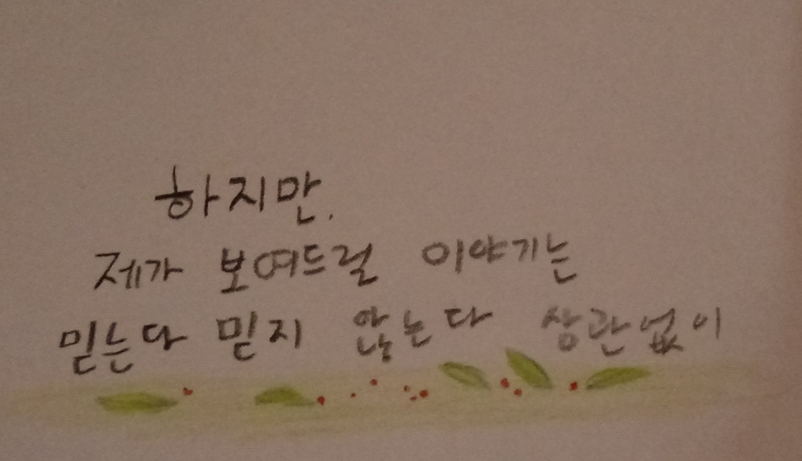 하지만,
제가 보여드릴 이야기는
믿는다 믿지 않는다 상관없이